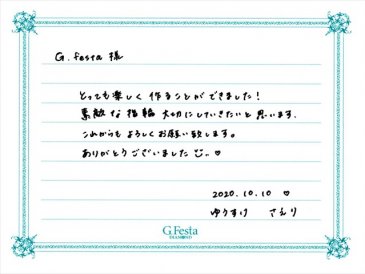 G.festa 様
とっても楽しく作ることができました!
素敵な指輪大切にしていきたいと思います.
これからもよろしくお願い致します。
ありがとうございました
2020.10.10 ♡
ゆうすけ さえり
G.Festa
DIAMOND